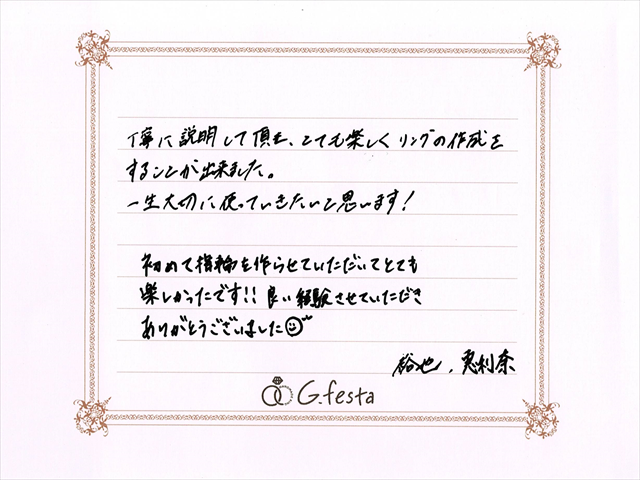 丁寧に説明して頂き、とても楽しくリングの作成を
することが出来ました。
一生大切に使っていきたいと思います!
初めて指輪を作らせていただいてとても
楽しかったです!!良い経験させていただき
ありがとうございました
裕也、恵利奈
G.festa